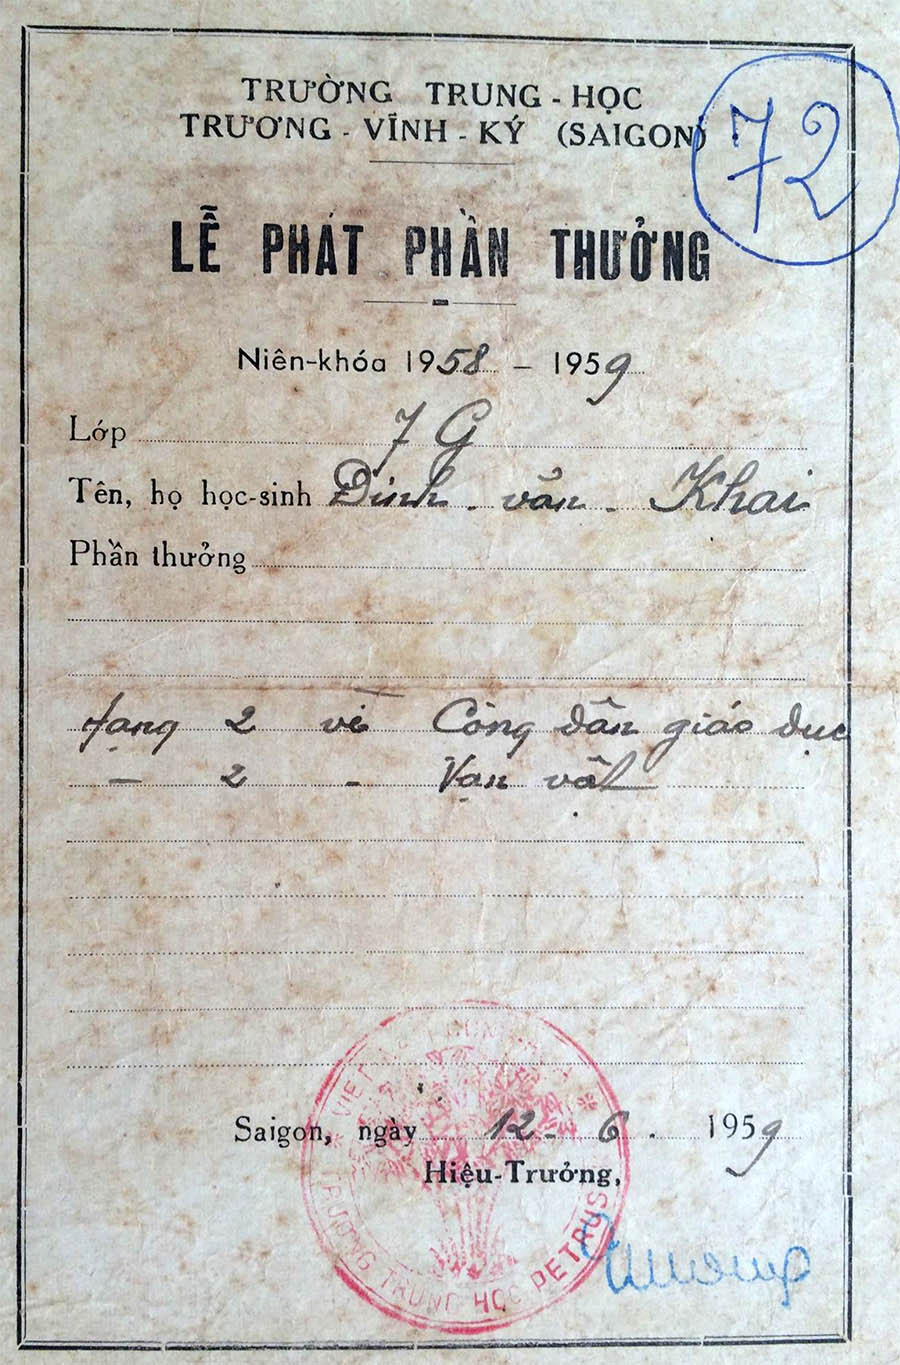 TRƯỜNG TRUNG - HỌC
TRƯƠNG - VĨNH - KÝ (SAIGON)
72
LỄ PHÁT PHẦN THƯỞNG
Niên-khóa 1958 - 1959
Lớp 7 G
Tên, họ học-sinh Đinh - văn - Khai
Phần thưởng
Hạng 2 về Công dân giáo dục
- 2 - Vạn vật
Saigon, ngày 12 - 6 - 1959
Hiệu-Trưởng,
VIỆT NAM CỘNG
TRƯỜNG TRUNG HỌC PETRUS